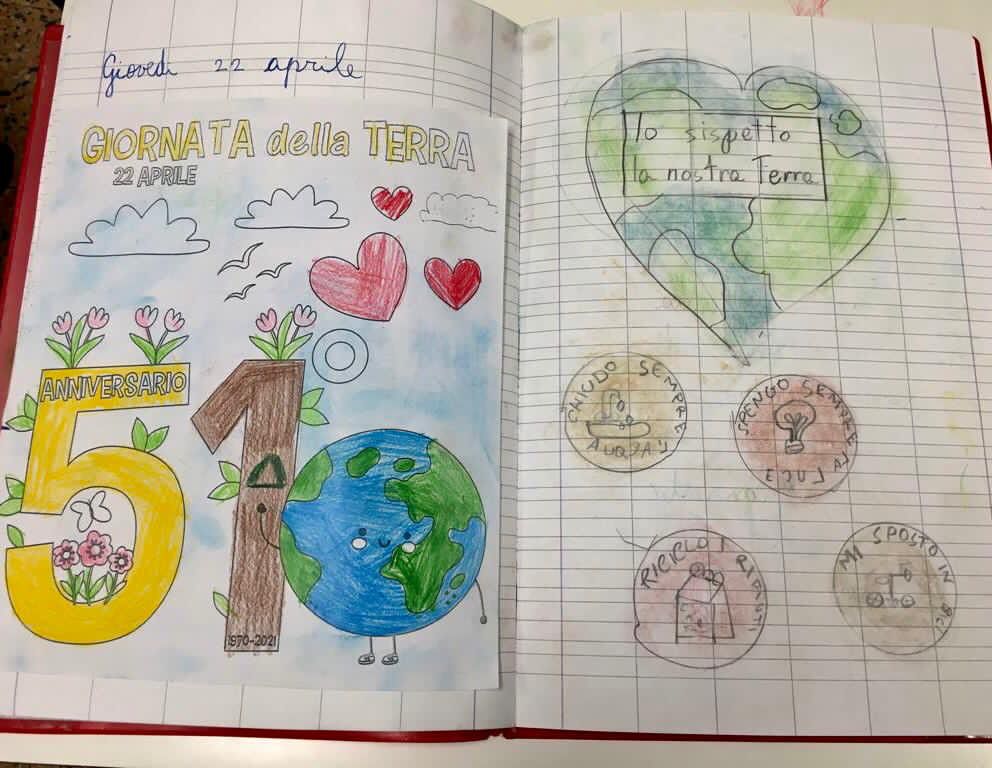 Giovedì 22 aprile
GIORNATA della TERRA
22 APRILE
ANNIVERSARIO
51°
1970-2021
Io sispetto
la nostra Terra
CHIUDO SEMPRE L'ACQUA
SPENGO SEMPRE LA LUCE
RICICLO I RIFIUTI
MI SPOSTO IN BICI